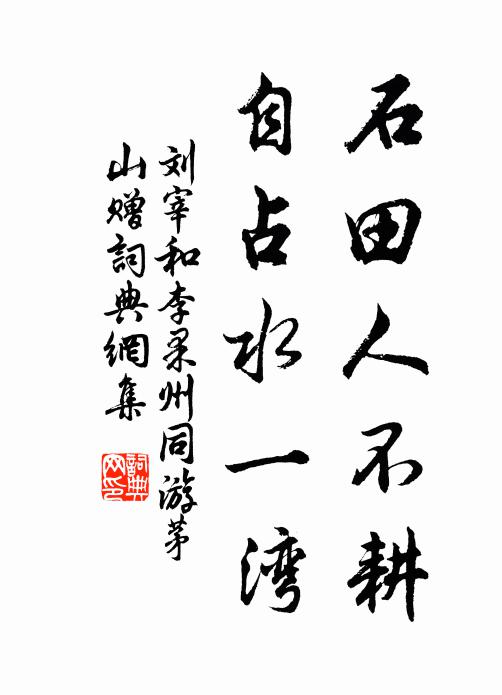 石田人不耕
自占水一湾
刘宰和李果州同游茅
山赠詞典網集
詞典
网印